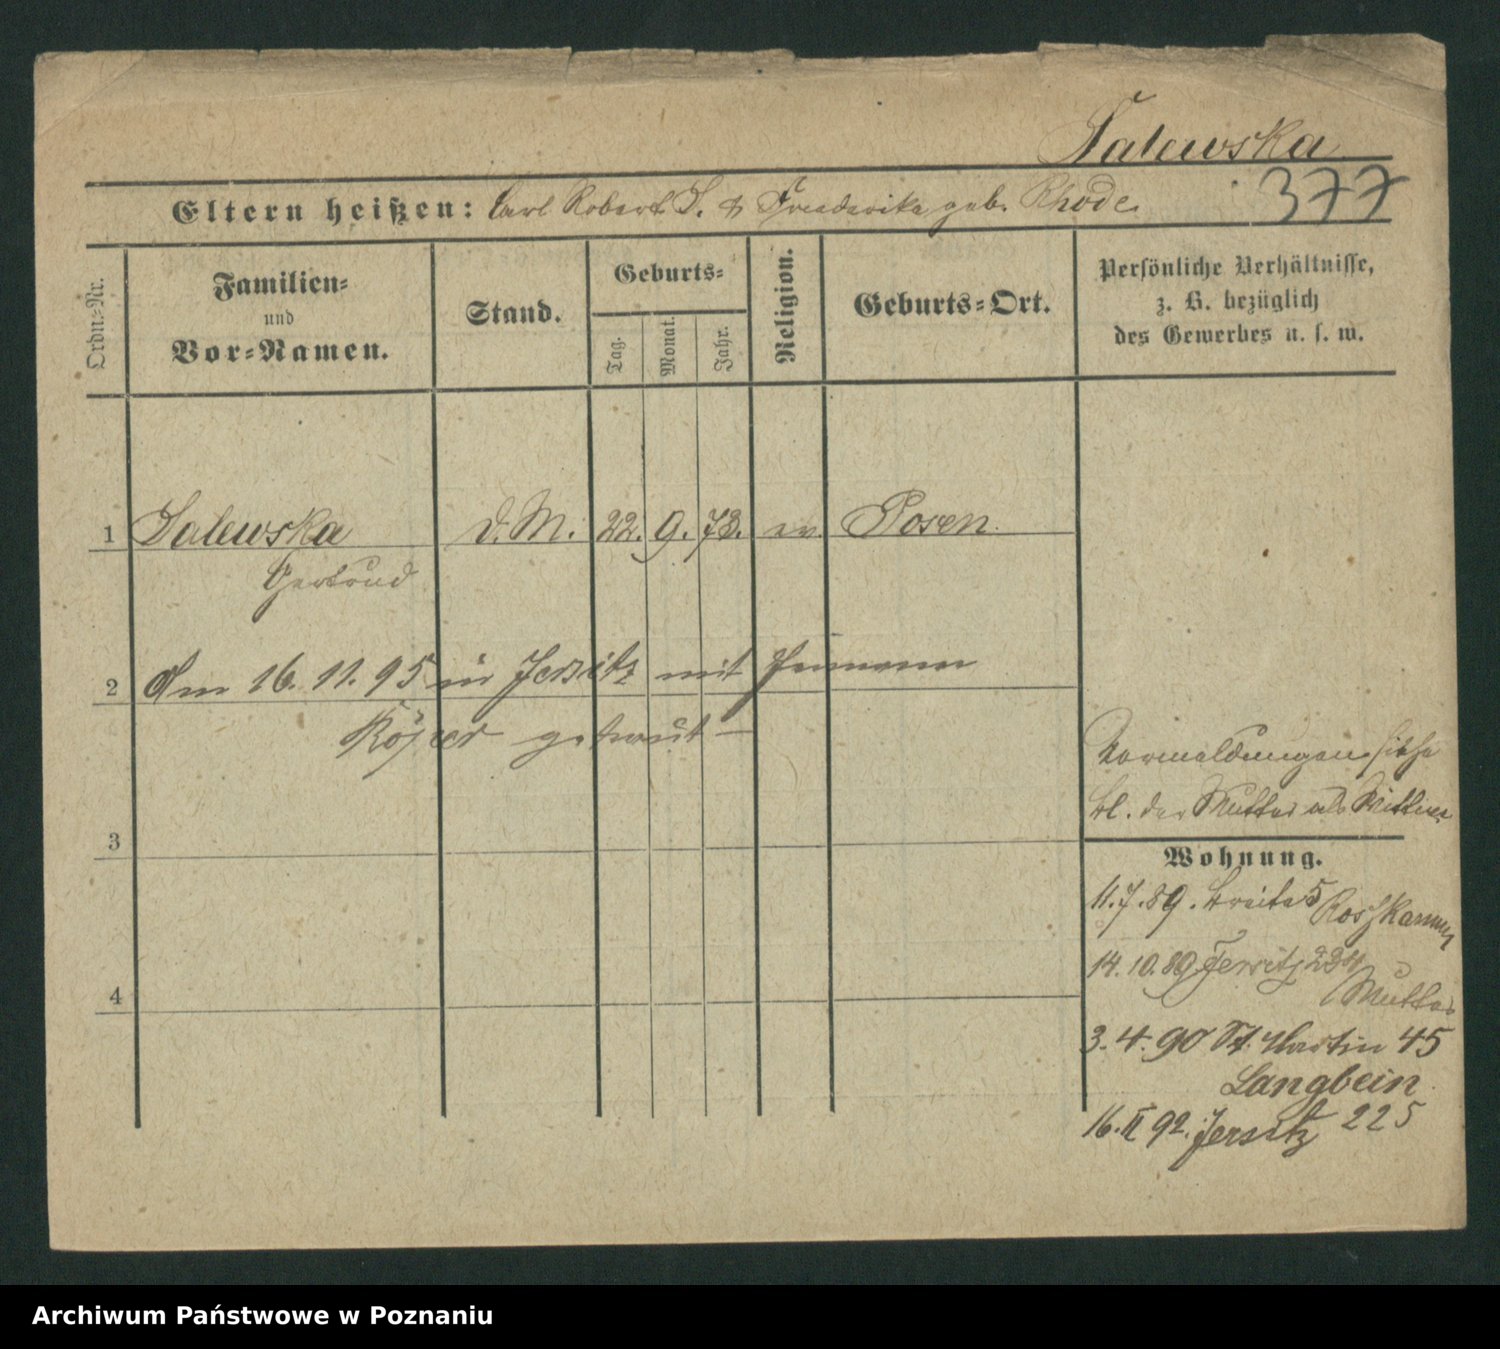 Salewska
377
Eltern heißen: Carl Robert S. & Friederike geb. Rhode.
Ordn.=Nr.
Familien=
und
Vor=Namen.
Stand.
Geburts=
Tag.
Monat.
Jahr.
Religion.
Geburts=Ort.
Persönliche Verhältnisse,
z. B. bezüglich
des Gewerbes u. s. w.
1 Salewska d. M. 22. 9. 73. ev. Posen.
Gertrud
2 Am 16. 11. 95 in Jersitz mit Hermann
Röper getraut —
Vormeldungen siehe
Bl. der Mutter als Wittwe
3
Wohnung.
11.7.89. Breite 5
14.10.89 Jersitz 224
Mutter
4
3.4.90 St. Martin 45
Langbein
16. II 92. Jersitz 225
Archiwum Państwowe w Poznaniu